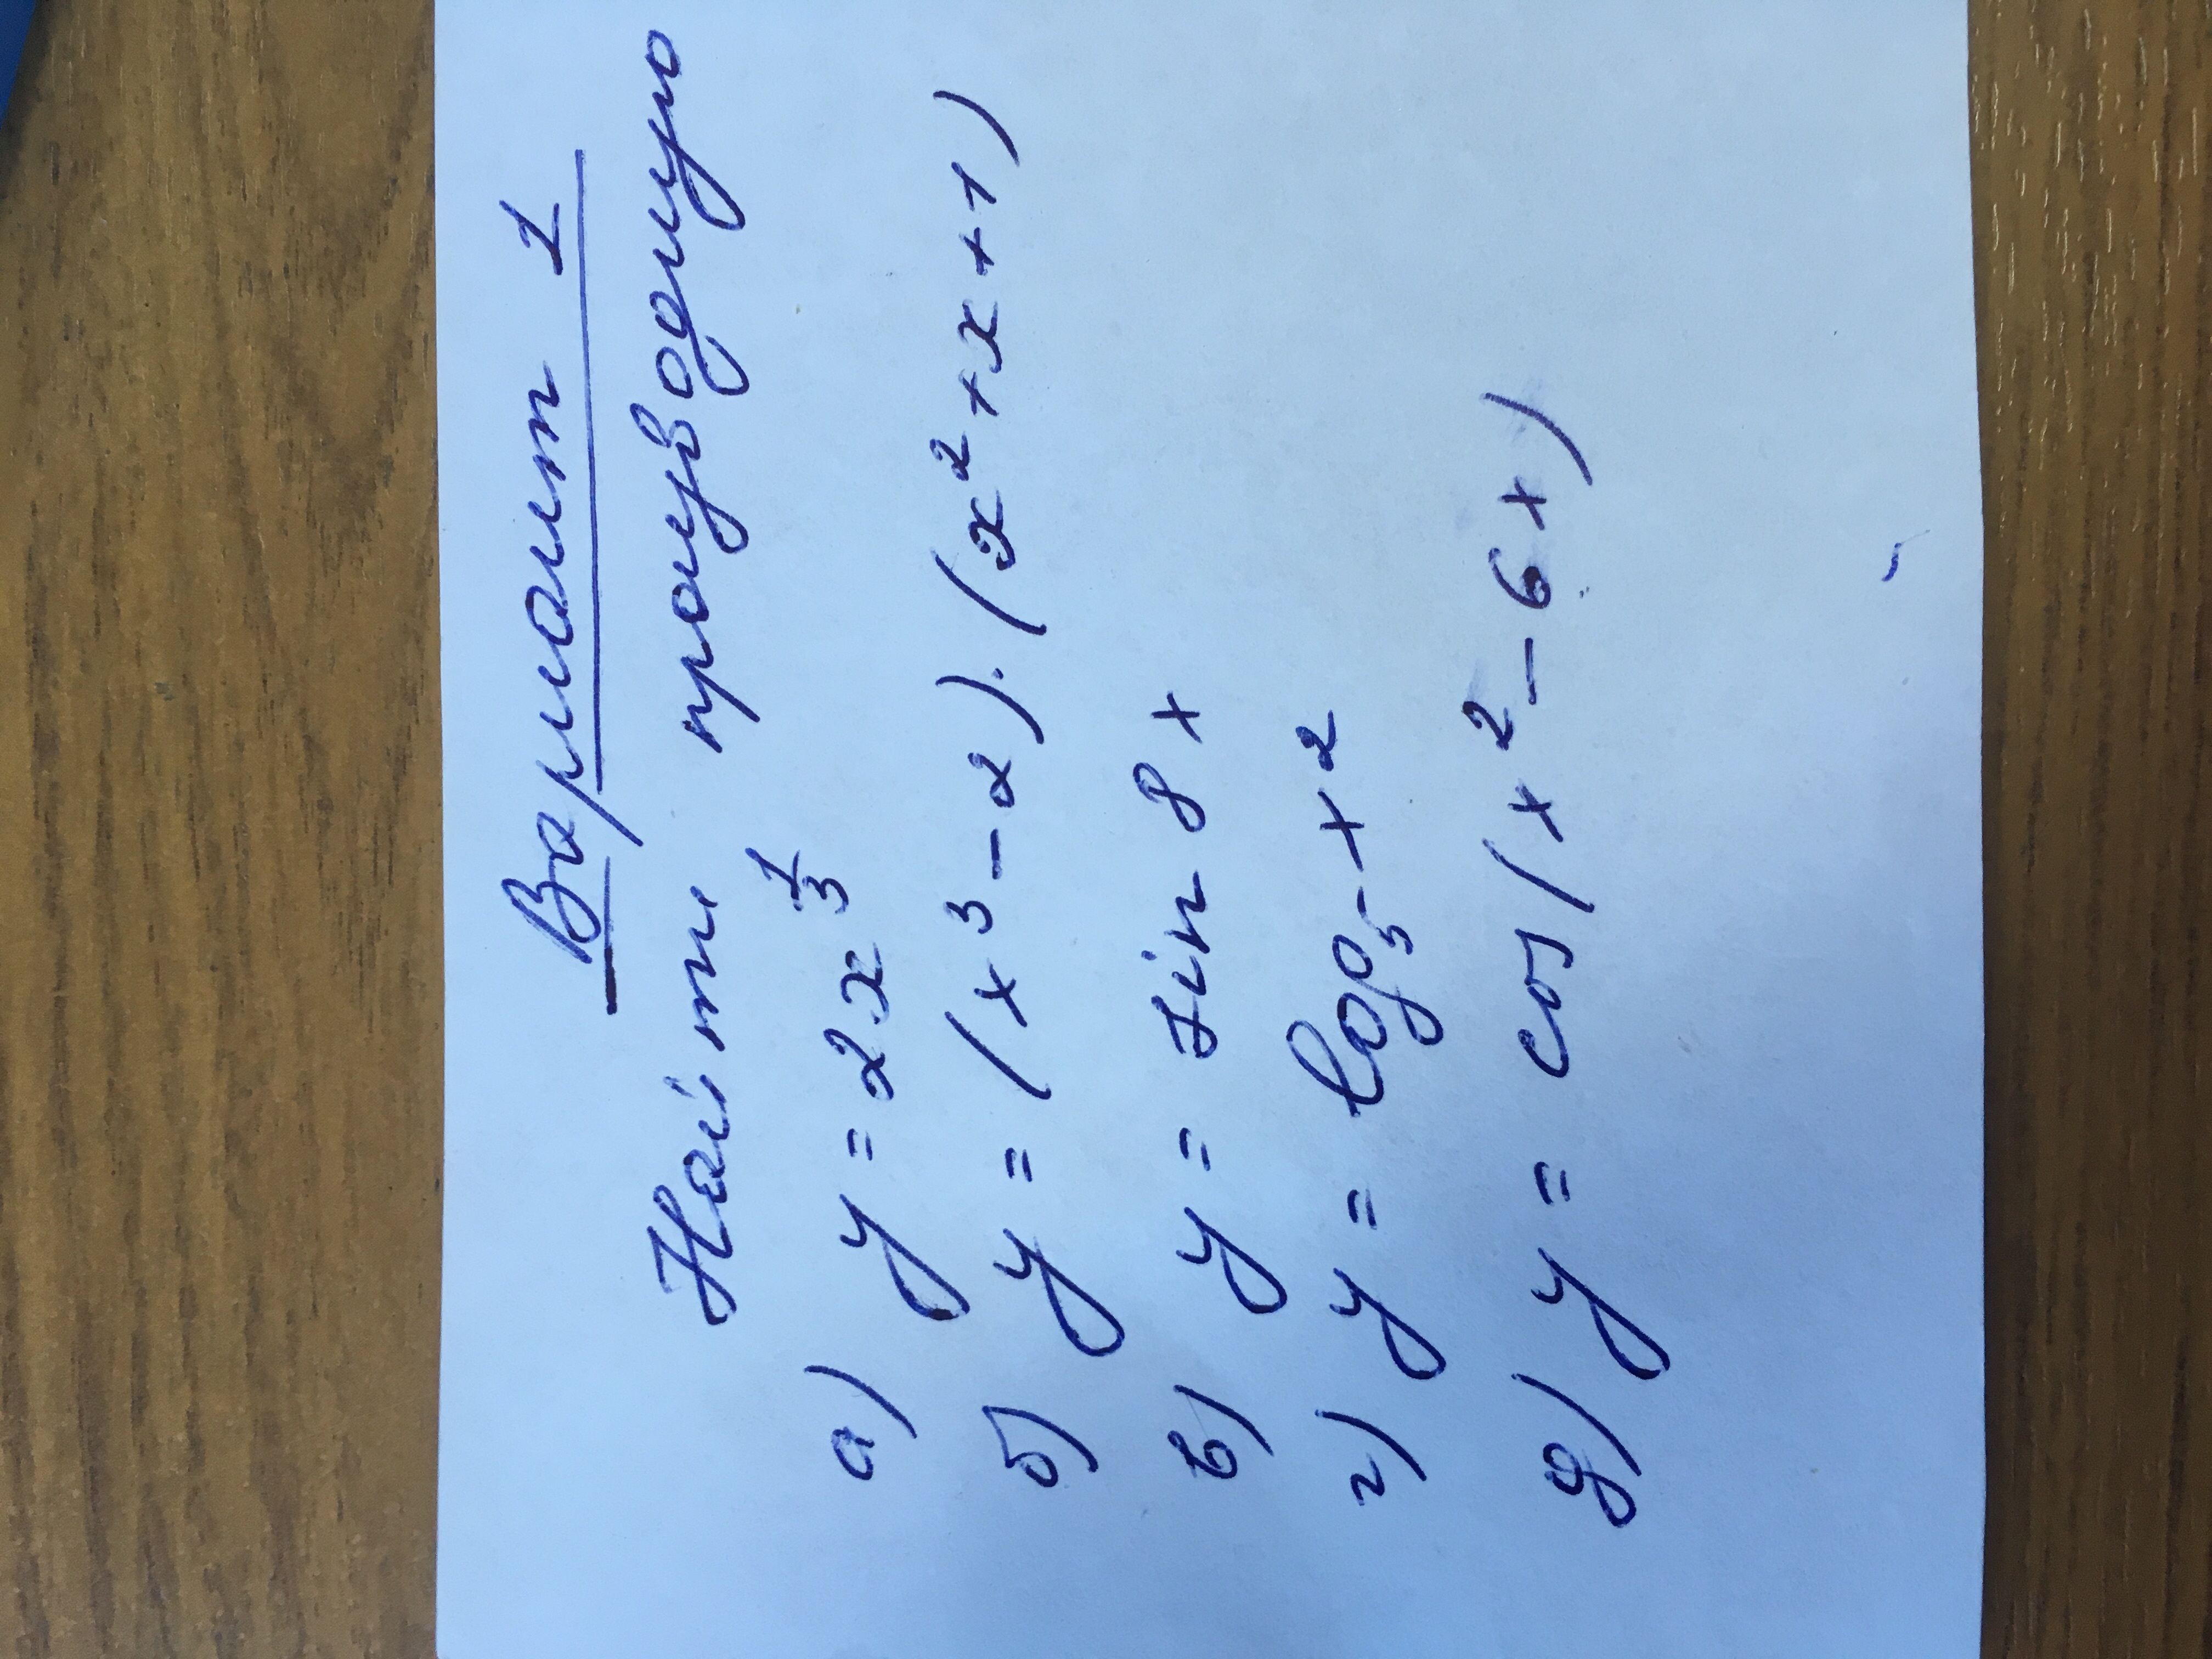 Вариант 1
Найти производную
а) y = 2x^{\frac{1}{3}}
б) y = (x³ - 2) · (x² + x + 1)
в) y = sin 8x
г) y = log₅ x²
д) y = cos(x² - 6x)